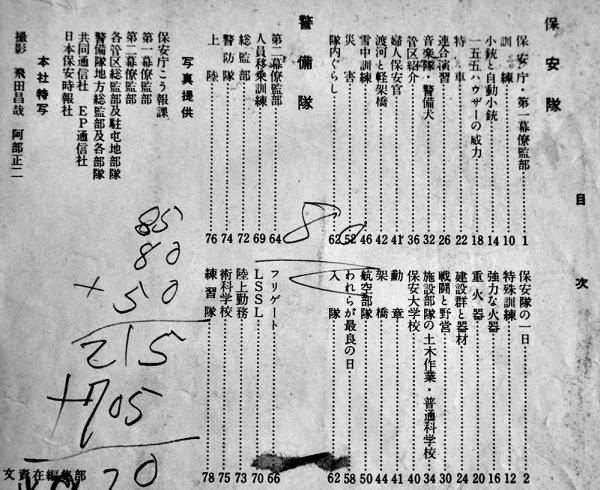 目次
保安隊
保安庁・第一幕僚監部 1
訓練 10
小銃と自動小銃 14
一五五ハウザーの威力 18
特車 22
連合演習 26
音楽隊・警備犬 32
管区紹介 36
婦人保安官 41
渡河と軽架橋 42
雪中訓練 46
災害 52
隊内ぐらし 62
保安隊の一日 2
特殊訓練 12
強力な火器 16
重火器 20
建設群と器材 24
戦闘と野営 30
施設部隊の土木作業・普通科学校 34
保安大学校 40
勳章 41
架橋 44
航空部隊 50
われらが最良の日 58
入隊 62
警備隊
第二幕僚監部 64
人員移乗訓練 69
総監部 72
警防隊 74
上陸 76
フリゲート 66
LSSL 70
陸上勤務 73
術科学校 75
練習隊 78
写真提供
保安庁こう報課
第一幕僚監部
第二幕僚監部
各管区総監部及駐屯地部隊
警備隊地方総監部及各部隊
共同通信社 EP通信社
日本保安時報社
本社特写
撮影 飛田昌哉 阿部正二
85
80
+50
215
+705
文責在編集部